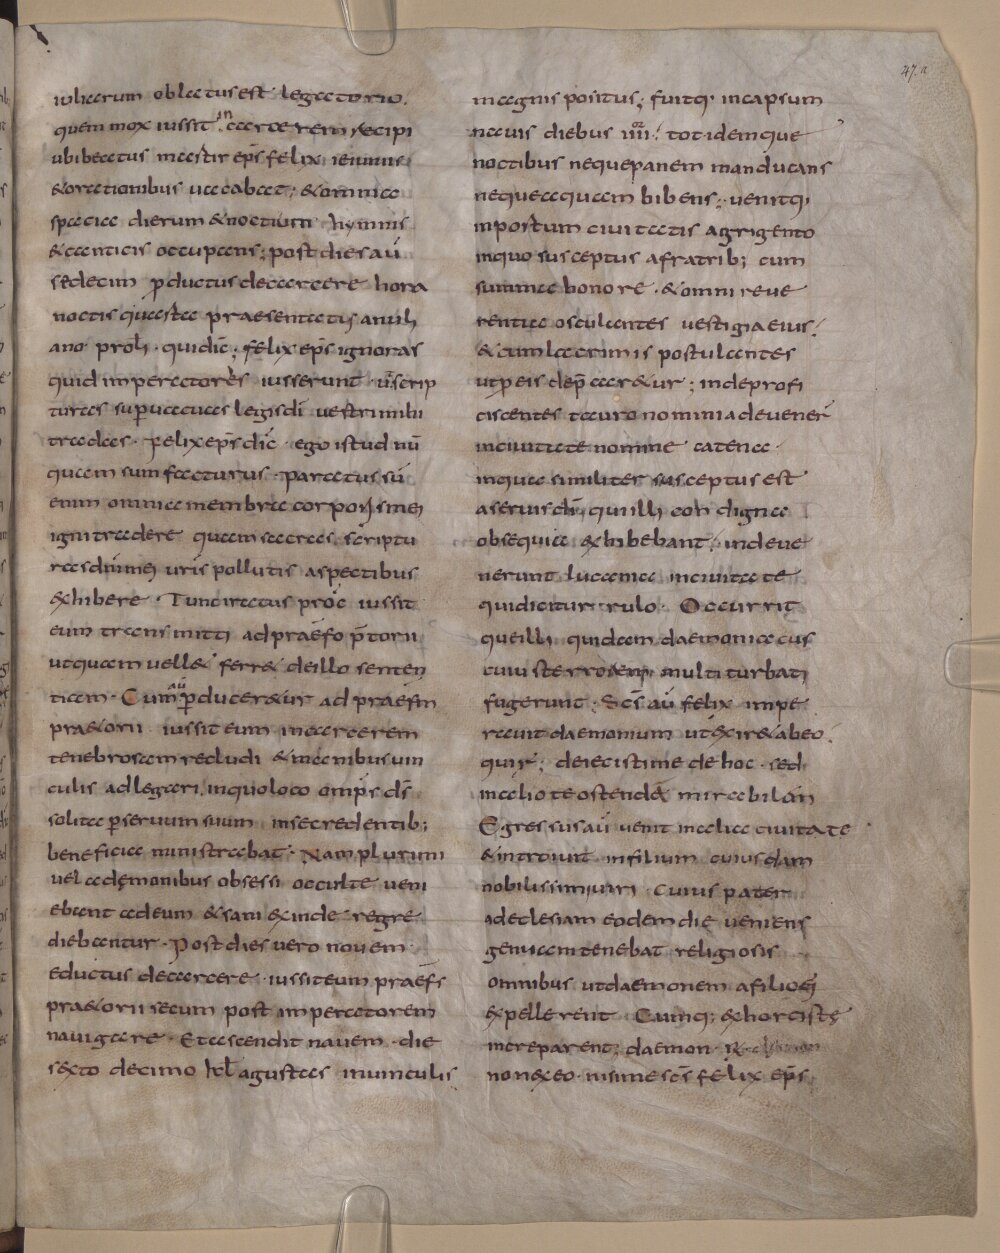 47.a
iubilerum oblatus est legatorio.
quem mox iussit in carcerem recipi
ubi beatus martir ep̄s felix ieiuniis
& orationibus uacabat; & omnia
spacia dierum & noctium hymnis
& canticis occupans; post dies aū
sedecim productus de carcere hora
noctis quasta praesentatus anuli
ano procl̄ · quidic̄; felix ep̄s ignoras
quid imperatores iusserunt · ut scrip
turas superuacuas legis dī uestri mihi
tradas · Felix ep̄s dic̄ · ego istud nū
quam sum facturus · paratus sū
enim omnia membra corporis mei
igni tradere quam sacras scriptu
ras diuinas uris pollutis aspectibus
exhibere · Tunc iratus proc̄ iussit
eum transmitti ad praefo p̄torii
ut quam uell& ferr& de illo senten
tiam · Cum aū produceretur ad praefm̄
praetorii iussit eum in carcerem
tenebrosam recludi & in manibus uin
culis adlegari, in quo loco omp̄s ds̄
solita per seruum suum in se credentib;
beneficia ministrabat · Nam plurimi
uel a demonibus obsessi occulte ueni
ebant ad eum & sani exinde regre
diebantur · Post dies uero nouem
eductus de carcere · iussit eum praefs̄
praetorii secum post imperatorem
nauigare · Et ascendit nauem · die
sexto decimo kal̄ agustas in uinculis
magnis positus; fuitq· in capsum
nauis diebus iiii or totidemque
noctibus neque panem manducans
neque aquam bibens; uenitq;
in postum ciuitatis agrigento
in quo susceptus a fratrib; cum
summa honore · & omni reue
rentia osculantes uestigia eius
& cum lacrimis postulantes
ut pro eis depraecaretur; inde profi
ciscentes taurominia deuener̄
in ciuitate nomine catena ·
in qua similiter susceptus est
a seruis dī, qui illi condigna
obsequia exhibebant; inde ue
nerunt lucania in ciuitate
qui dicitur rulo · Occurrit
que illi quidam daemoniacus
cuius terrorem multi turbati
fugerunt · Scs̄ aū felix impe
rauit daemonium ut exiret abeo
qui ↄ; deiecisti me de hoc · sed
in alio te ostendā mirabilem
Egressus aū uenit in alia ciuitate
& introiuit in filium cuiusdam
nobilissimi uiri · Cuius pater
ad eclesiam eodem die ueniens
genua tenebat religiosis
omnibus ut daemonem a filio ei
expellerent Cumq; exhorcistę
increparent; daemon
non exeo · nisi me scs̄ felix ep̄s